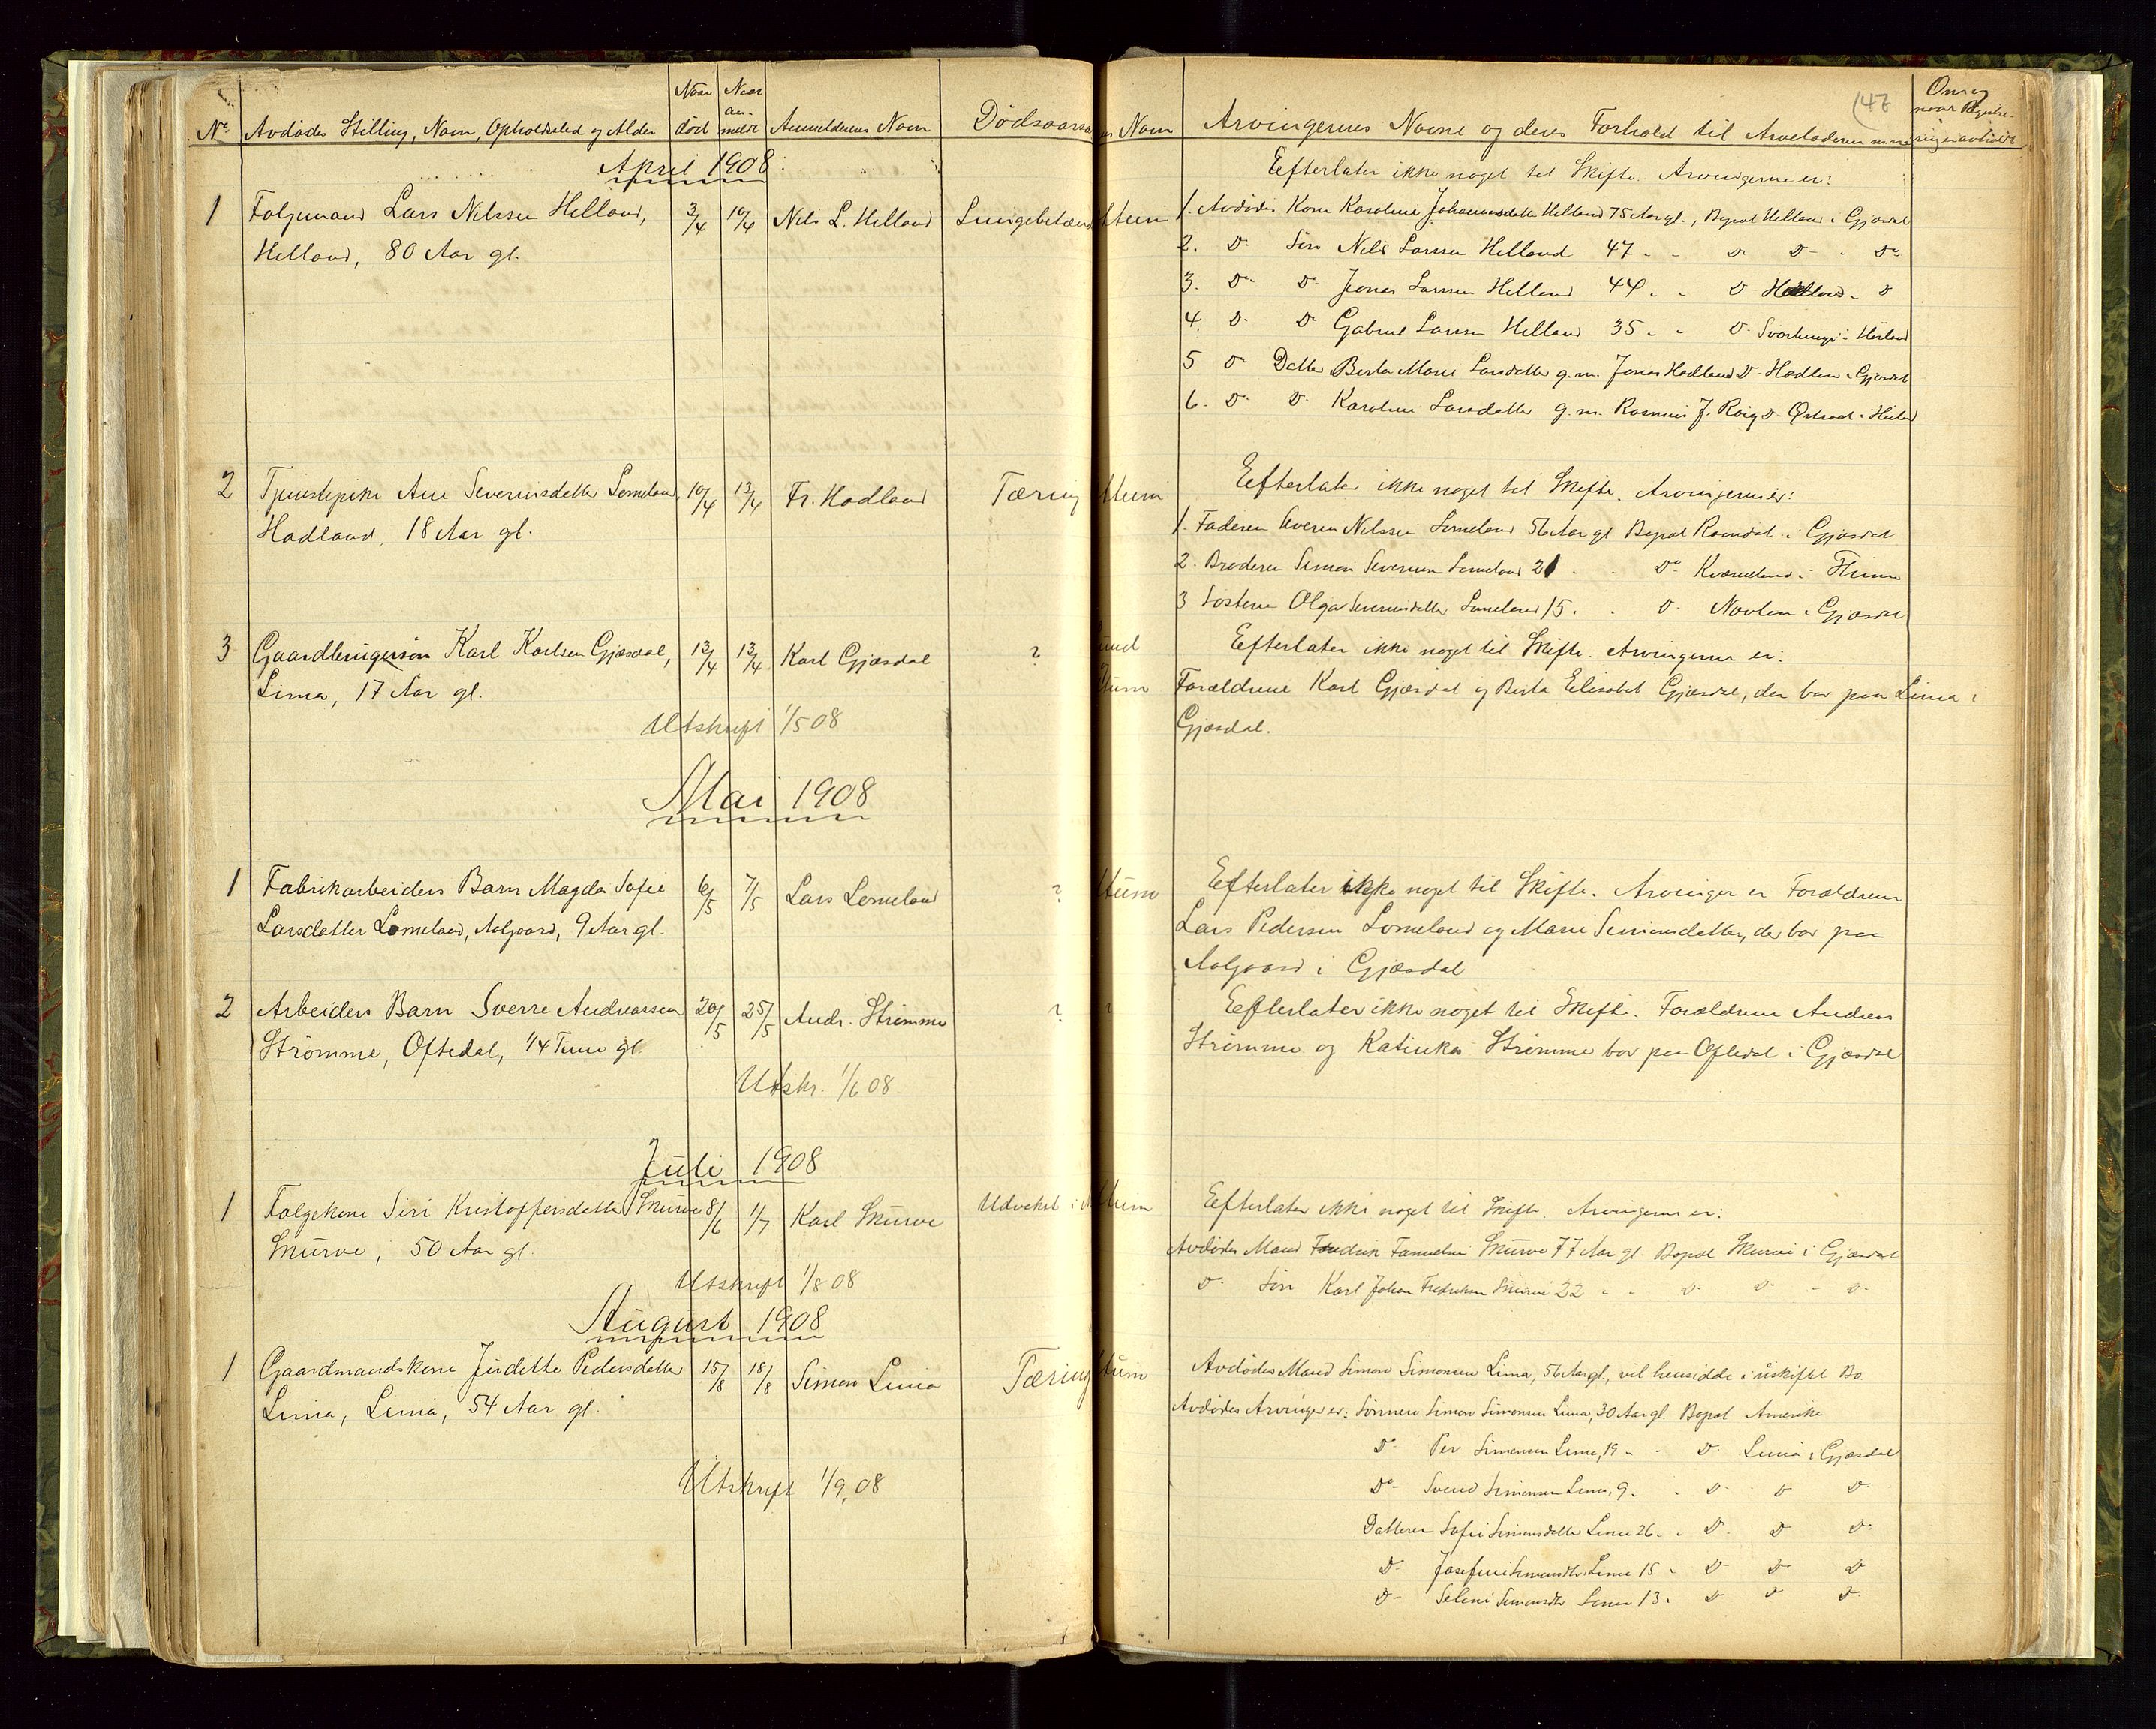 No Avdödes Stilling, Navn, Opholdssted og Alder Naar död Naar anmeldt Anmelderens Navn Dödsaarsa
April 1908
1 Folgemand Lars Nilssen Helland, 3/4 10/4 Nils L. Helland Lungebetænd
Helland, 80 Aar gl.
2 Tjenstepike Ane Severinsdatter Lomeland, 10/4 13/4 Fr. Hadland Tæring
Hadland, 18 Aar gl.
3 Gaardbrugersön Karl Karlsen Gjæsdal, 13/4 13/4 Karl Gjæsdal ?
Lima, 17 Aar gl.
Utskrift 1/5 08
Mai 1908
1 Fabrikarbeiders Barn Magda Sofie 6/5 7/5 Lars Lomeland ?
Larsdatter Lomeland, Aalgaard, 9 Aar gl.
2 Arbeiders Barn Sverre Andreassen 20/5 25/5 Andr. Strömme ?
Strömme, Oftedal, 1/4 Time gl.
Utskr. 1/6 08
Juli 1908
1 Folgekone Siri Kristoffersdatter Skurve 8/6 1/7 Karl Skurve Udvekst i
Skurve, 50 Aar gl.
Utskrift 1/8 08
August 1908
1 Gaardmandskone Juditte Pedersdatter 15/8 18/8 Simon Lima Tæring
Lima, Lima, 54 Aar gl.
Utskrift 1/9 08
Navn Arvingernes Navne og deres Forhold til Arveladeren m.m.
147
Efterlater ikke noget til Skifte. Arvingerne er:
1. Avdödes Kone Karoline Johannesdatter Helland 75 Aar gl., Bopæl Helland i Gjæsdal
2. Do Sön Nils Larssen Helland 47 - - Do Do - Do
3. Do Do Jonas Larssen Helland 44 - - Do Hadland - Do
4. Do Do Gabriel Larssen Helland 35 - - Do i Höiland
5 Do Datter Berta Marie Larsdatter g.m. Jonas Hadland Do Hadland i Gjæsdal
6. Do Do Karoline Larsdatter g.m. Rasmus J. Do i Höiland
Efterlater ikke noget til Skifte. Arvingerne er:
1. Faderen Severin Nilssen Lomeland 56 Aar gl Bopæl i Gjæsdal
2. Broderen Simon Severinsen Lomeland 21 - - Do Kværneland i Thime
3 Sösteren Olga Severinsdatter Lomeland 15 - - Do i Gjæsdal
Efterlater ikke noget til Skifte. Arvingerne er:
Forældrene Karl Gjæsdal og Berta Elisabet Gjæsdal, der bor paa Lima i
Gjæsdal.
Efterlater ikke noget til Skifte. Arvinger er Forældrene
Lars Pedersen Lomeland og Marie Simonsdatter, der bor paa
Aalgaard i Gjæsdal
Efterlater ikke noget til Skifte. Forældrene Andreas
Strömme og Katinka Strömme bor paa Oftedal i Gjæsdal
Efterlater ikke noget til Skifte. Arvingerne er:
Avdödes Mand Fredrik Skurve 77 Aar gl. Bopæl Skurve i Gjæsdal
Do Sön Karl Johan Fredriksen Skurve 22 - - Do Do - Do
Avdödes Mand Simon Simonsen Lima, 56 Aar gl., vil hensidde i uskiftet Bo.
Avdödes Arvinger er: Sönnen Simon Simonsen Lima, 30 Aar gl. Bopæl Amerika
Do Per Simonsen Lima, 19 - - Do Lima i Gjæsdal
Do Svend Simonsen Lima, 9 - - Do Do Do
Datteren Sofie Simonsdatter Lima 26 - - Do Do Do
Do Josefine Simonsdtr. Lima 15 - Do Do Do
Do Seline Simonsdtr Lima 13 - Do Do Do